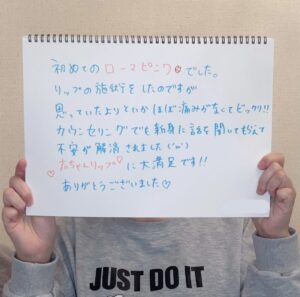 初めての ローズピンク♡でした。
リップの施術をしたのですが
思っていたよりというかほぼ痛みがなくてビックリ!!
カウンセリングでも親身に話を聞いてもらえて
不安が解消されました(^^)
♡赤ちゃんリップ♡に大満足です!!
ありがとうございました♡
JUST DO IT